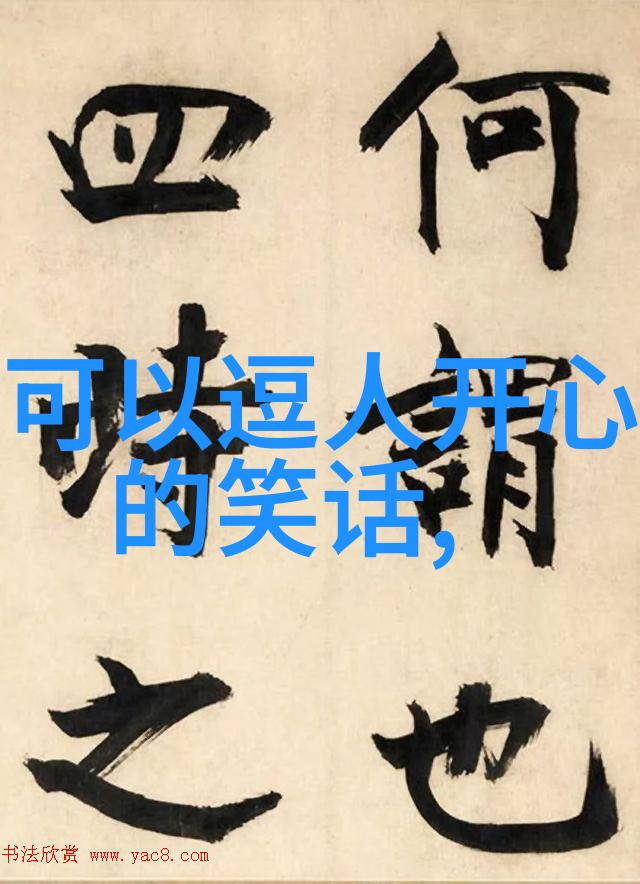 何謂也
四時之
可以逗人开心
的笑话,
书法欣赏 www.yac8.com